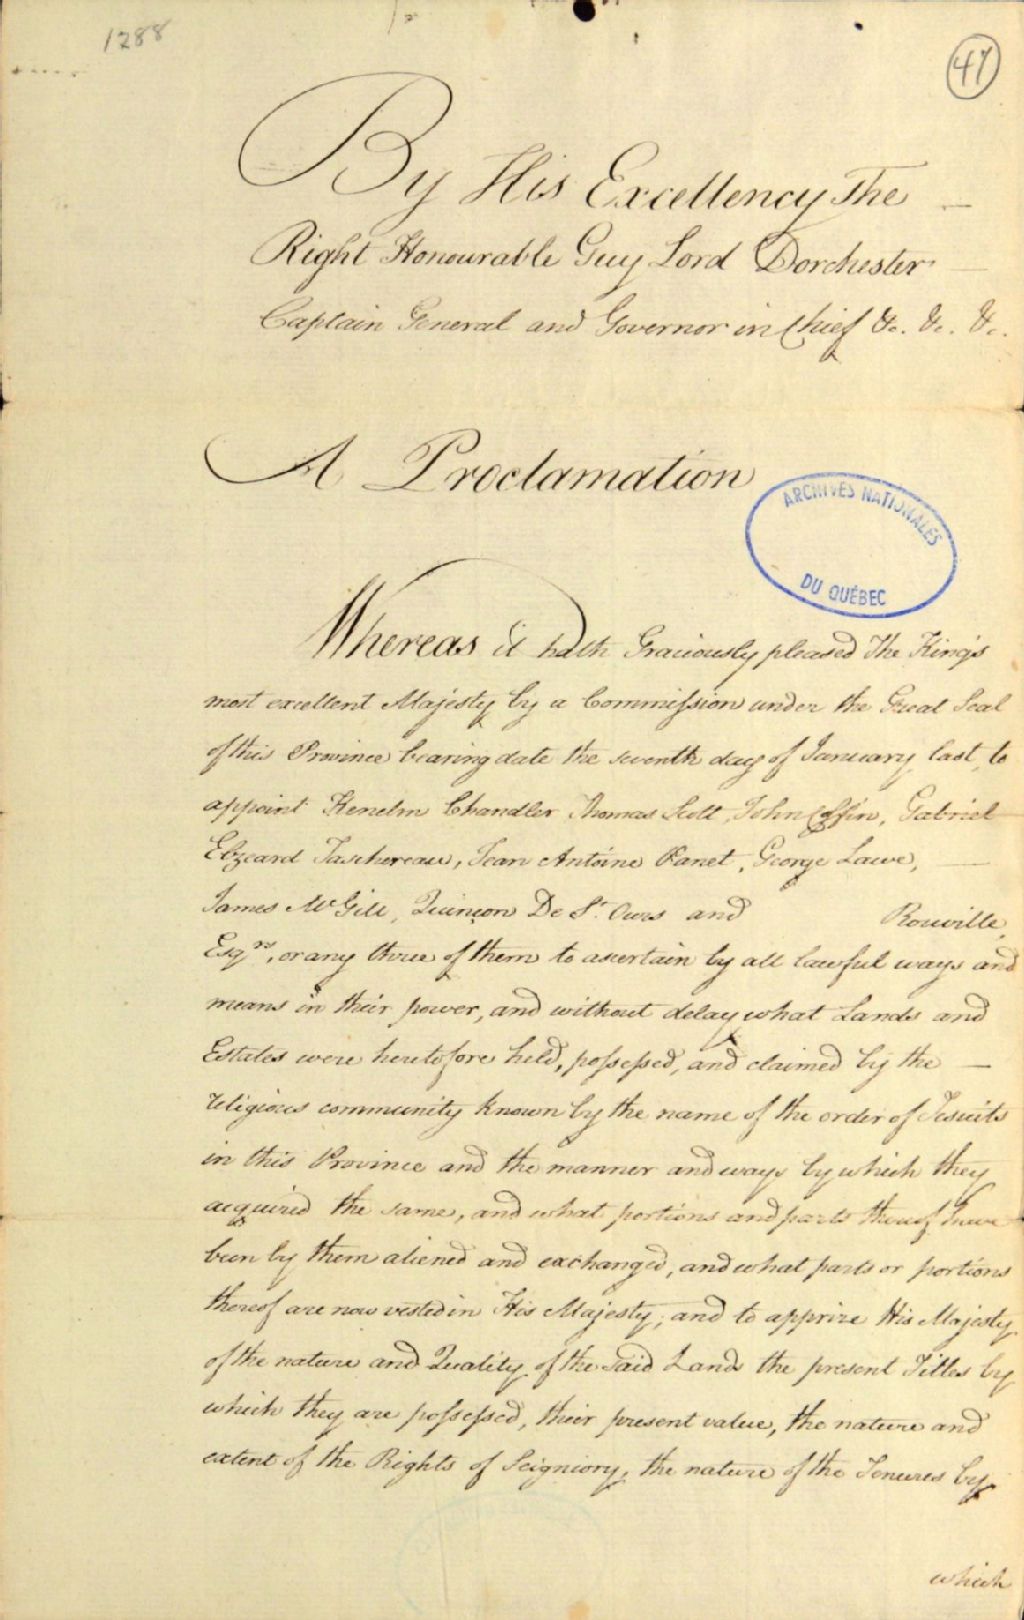 1288
47
By His Excellency The
Right Honourable Guy Lord Dorchester
Captain General and Governor in Chief &c. &c. &c.
A Proclamation
ARCHIVES NATIONALES
DU QUÉBEC
Whereas it hath Graciously pleased The King's
most excellent Majesty by a Commission under the Great Seal
of this Province bearing date the seventh day of January last, to
appoint Kenelm Chandler Thomas Scott, John Coffin, Gabriel
Elzeard Taschereau, Jean Antoine Panet, George Lawe,
James McGill, Quinson De St. Ours and Rouville,
Esqrs, or any three of them to ascertain by all lawful ways and
means in their power, and without delay what Lands and
Estates were heretofore held, possessed, and claimed by the
religious community known by the name of the order of Jesuits
in this Province and the manner and ways by which they
acquired the same, and what portions and parts thereof have
been by them aliened and exchanged, and what parts or portions
thereof are now vested in His Majesty, and to apprize His Majesty
of the nature and Quality of the said Lands the present Titles by
which they are possessed, their present value, the nature and
extent of the Rights of Seigniory, the nature of the Tenures by
which